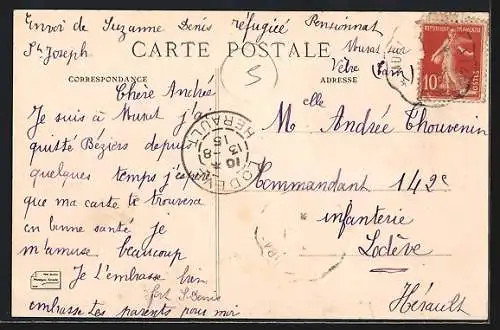 Envoi de Suzanne Denis réfugiée Pensionnat
St Joseph
Murat sur
Vèbre (Tarn)
CARTE POSTALE
CORRESPONDANCE
ADRESSE
5
RÉPUBLIQUE FRANÇAISE
10
POSTES
LODÈVE
HÉRAULT
10 * -8
13
15
Chère Andrée
Je suis à Murat j'ai
quitté Béziers depuis
quelques temps j'espère
que ma carte te trouvera
en bonne santé je
m'amuse beaucoup
Je t'embrasse bien
fort S. Denis
embrasse tes parents pour moi
Melle Andrée Thouvenin
Commandant 142e
infanterie
Lodève
Hérault